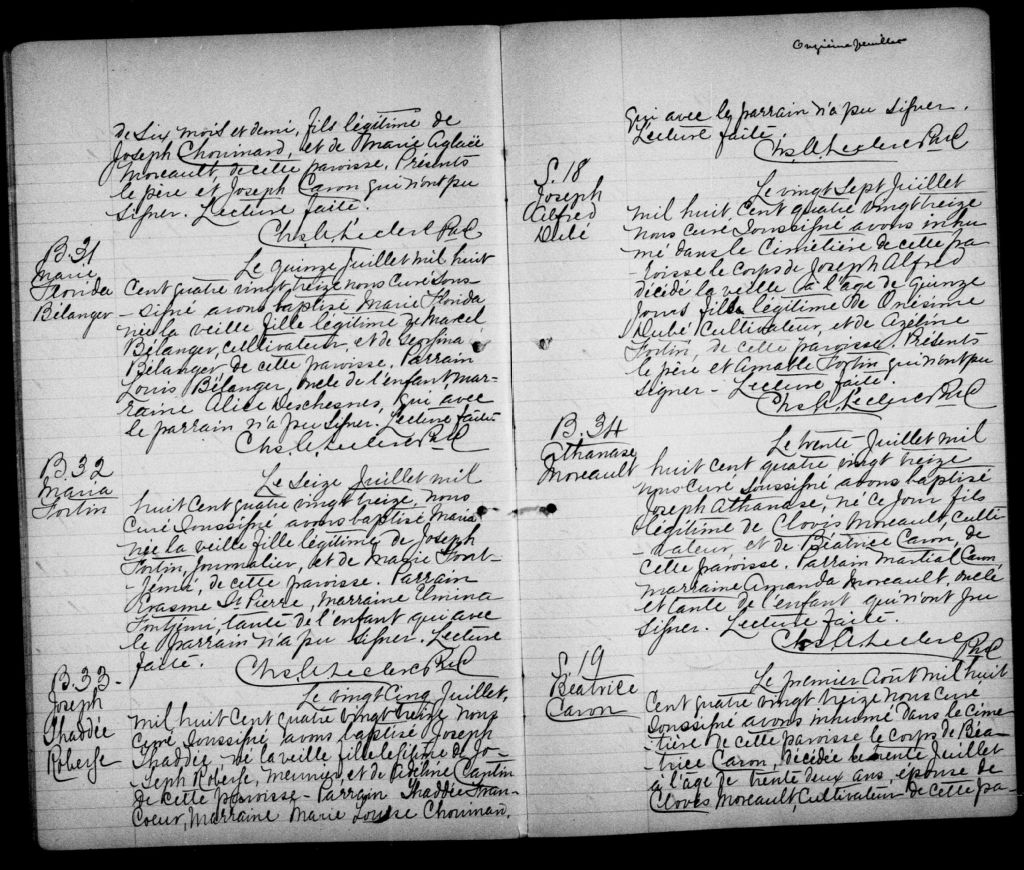 de Six mois et demi, fils légitime de
Joseph Chouinard, et de Marie Aglaë
Moreault, de cette paroisse. Présents
le père et Joseph Caron qui n'ont pu
signer. Lecture faite.
Chs. A. Leclerc Ptre C
B. 31
Marie
Florida
Bélanger
Le quinze Juillet mil huit
Cent quatre vingt treize nous Curé Sous-
-signé avons baptisé Marie Florida
née la veille fille légitime de Marcel
Bélanger, cultivateur, et de
Bélanger de cette paroisse. Parrain
Louis Bélanger, oncle de l'enfant mar-
raine Alice Deschesnes, qui avec
le parrain n'a pu signer. Lecture faite
Chs. A. Leclerc Ptre C
B. 32
Maria
Fortin
Le Seize Juillet mil
huit cent quatre vingt treize, nous
Curé Soussigné avons baptisé Maria
née la veille fille légitime de Joseph
Fortin, journalier, et de Marie Font-
-jémé, de cette paroisse. Parrain
Erasme St Pierre, Marraine Elmina
Fontjémi, tante de l'enfant qui avec
le parrain n'a pu signer. Lecture
faite.
Chs. A. Leclerc Ptre C
B. 33
Joseph
Thaddée
Roberge
Le vingt Cinq Juillet,
mil huit Cent quatre vingt treize nous
Curé Soussigné avons baptisé Joseph
Thaddée, né la veille fils légitime de Jo-
-seph Roberge, meunier, et de Adéline Cantin
de cette paroisse - Parrain Thaddée Fran-
Coeur, Marraine Marie Louise Chouinard,
Onzième feuillet
qui avec le parrain n'a pu signer.
Lecture faite.
Chs. A. Leclerc Ptre C
S. 18
Joseph
Alfred
Dubé
Le vingt Sept Juillet
mil huit Cent quatre vingt treize
nous Curé Soussigné avons inhu-
mé dans le Cimetière de cette pa-
roisse le corps de Joseph Alfred
décédé la veille à l'âge de quinze
jours fils légitime de Onésime
Dubé Cultivateur, et de Azeline
Fortin, de cette paroisse. Présents
le père et Amable Fortin qui n'ont pu
signer - Lecture faite.
Chs. A. Leclerc Ptre C
B. 34
Athanase
Moreault
Le trente Juillet mil
huit cent quatre vingt treize
nous Curé Soussigné avons baptisé
Joseph Athanase, né ce jour fils
légitime de Clovis Moreault, Culti-
-vateur, et de Béatrice Caron, de
cette paroisse. Parrain Martial Caron
marraine Amanda Moreault, oncle
et tante de l'enfant qui n'ont pu
signer. Lecture faite.
Chs. A. Leclerc Ptre C
S. 19
Béatrice
Caron
Le premier Août mil huit
Cent quatre vingt treize nous Curé
Soussigné avons inhumé dans le Cime-
-tière de cette paroisse le corps de Béa-
-trice Caron, décédée le trente Juillet
à l'âge de trente deux ans, épouse de
Clovis Moreault, Cultivateur de cette pa-